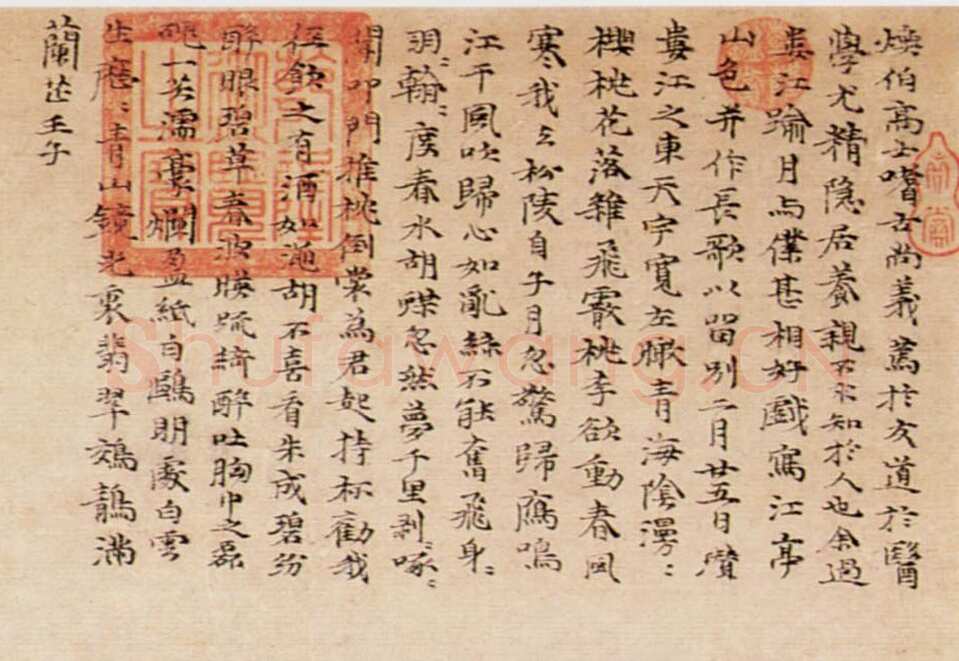 煥伯高士嗜古尚義篤於友道於醫
學尤精隱居養親不求知於人也余過
婁江踰月与僕甚相好戲寫江亭
山色并作長歌以留別二月廿五日瓚
婁江之東天宇寬左瞰青海陰漫〻
櫻桃花落雜飛霰桃李欲動春風
寒我之松陵自子月忽驚歸鴈鳴
江干風吹歸心如亂絲不能奮飛身〻
羽〻翰〻度春水胡蝶忽然夢千里剥〻啄〻
聞叩門推枕倒裳為君起持杯勸我
徑飲之有酒如澠胡不喜看朱成碧紛
醉眼碧草春波暎疏綺醉吐胸中之磊
磈一笑濡豪爛盈紙白鷗明處白雲
生歷〻青山鏡光裏翡翠鵁鶄滿
蘭茝壬子
Shufawang.CN